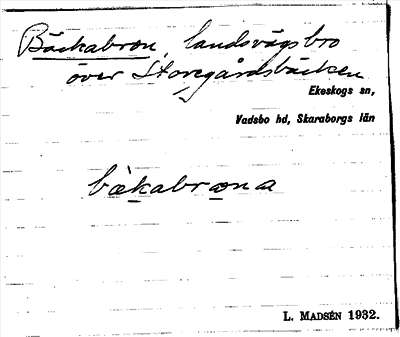 Bäckabron, landsvägsbro
över Storegårdsbäcken
Ekeskogs sn,
Vadsbo hd, Skaraborgs län
bækabrøna
L. MADSÉN 1932.